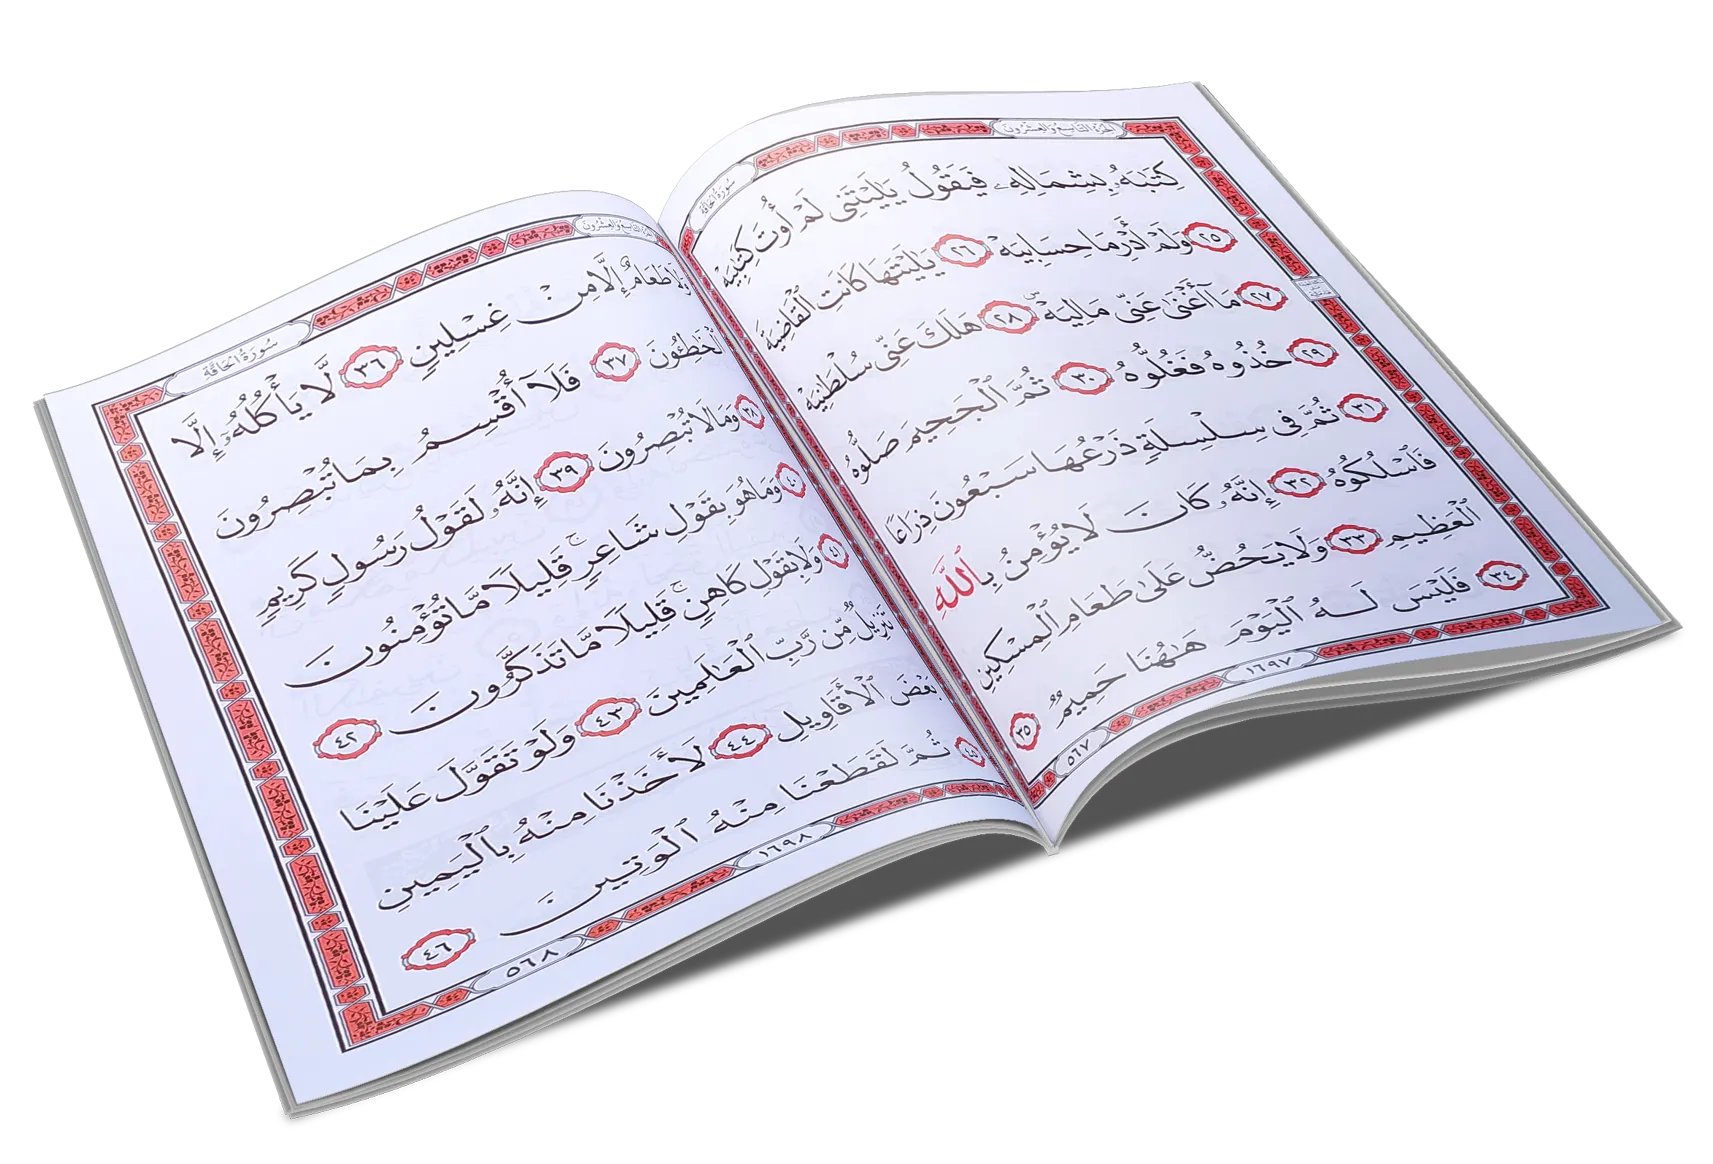 الجزء التاسع والعشرون
سورة الحاقة
كِتَٰبَهُۥ بِشِمَالِهِۦ فَيَقُولُ يَٰلَيْتَنِى لَمْ أُوتَ كِتَٰبِيَهْ
٢٥ وَلَمْ أَدْرِ مَا حِسَابِيَهْ ٢٦ يَٰلَيْتَهَا كَانَتِ ٱلْقَاضِيَةَ
٢٧ مَآ أَغْنَىٰ عَنِّى مَالِيَهْ ۜ ٢٨ هَلَكَ عَنِّى سُلْطَٰنِيَهْ
٢٩ خُذُوهُ فَغُلُّوهُ ٣٠ ثُمَّ ٱلْجَحِيمَ صَلُّوهُ
٣١ ثُمَّ فِى سِلْسِلَةٍ ذَرْعُهَا سَبْعُونَ ذِرَاعًا
فَٱسْلُكُوهُ ٣٢ إِنَّهُۥ كَانَ لَا يُؤْمِنُ بِٱللَّهِ
ٱلْعَظِيمِ ٣٣ وَلَا يَحُضُّ عَلَىٰ طَعَامِ ٱلْمِسْكِينِ
٣٤ فَلَيْسَ لَهُ ٱلْيَوْمَ هَٰهُنَا حَمِيمٌ ٣٥
١٦٩٧
٥٦٧
الجزء التاسع والعشرون
سورة الحاقة
وَلَا طَعَامٌ إِلَّا مِنْ غِسْلِينٍ ٣٦ لَّا يَأْكُلُهُۥٓ إِلَّا
ٱلْخَٰطِـُٔونَ ٣٧ فَلَآ أُقْسِمُ بِمَا تُبْصِرُونَ
٣٨ وَمَا لَا تُبْصِرُونَ ٣٩ إِنَّهُۥ لَقَوْلُ رَسُولٍ كَرِيمٍ
٤٠ وَمَا هُوَ بِقَوْلِ شَاعِرٍ ۚ قَلِيلًا مَّا تُؤْمِنُونَ
٤١ وَلَا بِقَوْلِ كَاهِنٍ ۚ قَلِيلًا مَّا تَذَكَّرُونَ ٤٢
تَنزِيلٌ مِّن رَّبِّ ٱلْعَٰلَمِينَ ٤٣ وَلَوْ تَقَوَّلَ عَلَيْنَا
بَعْضَ ٱلْأَقَاوِيلِ ٤٤ لَأَخَذْنَا مِنْهُ بِٱلْيَمِينِ
٤٥ ثُمَّ لَقَطَعْنَا مِنْهُ ٱلْوَتِينَ ٤٦
١٦٩٨
٥٦٨